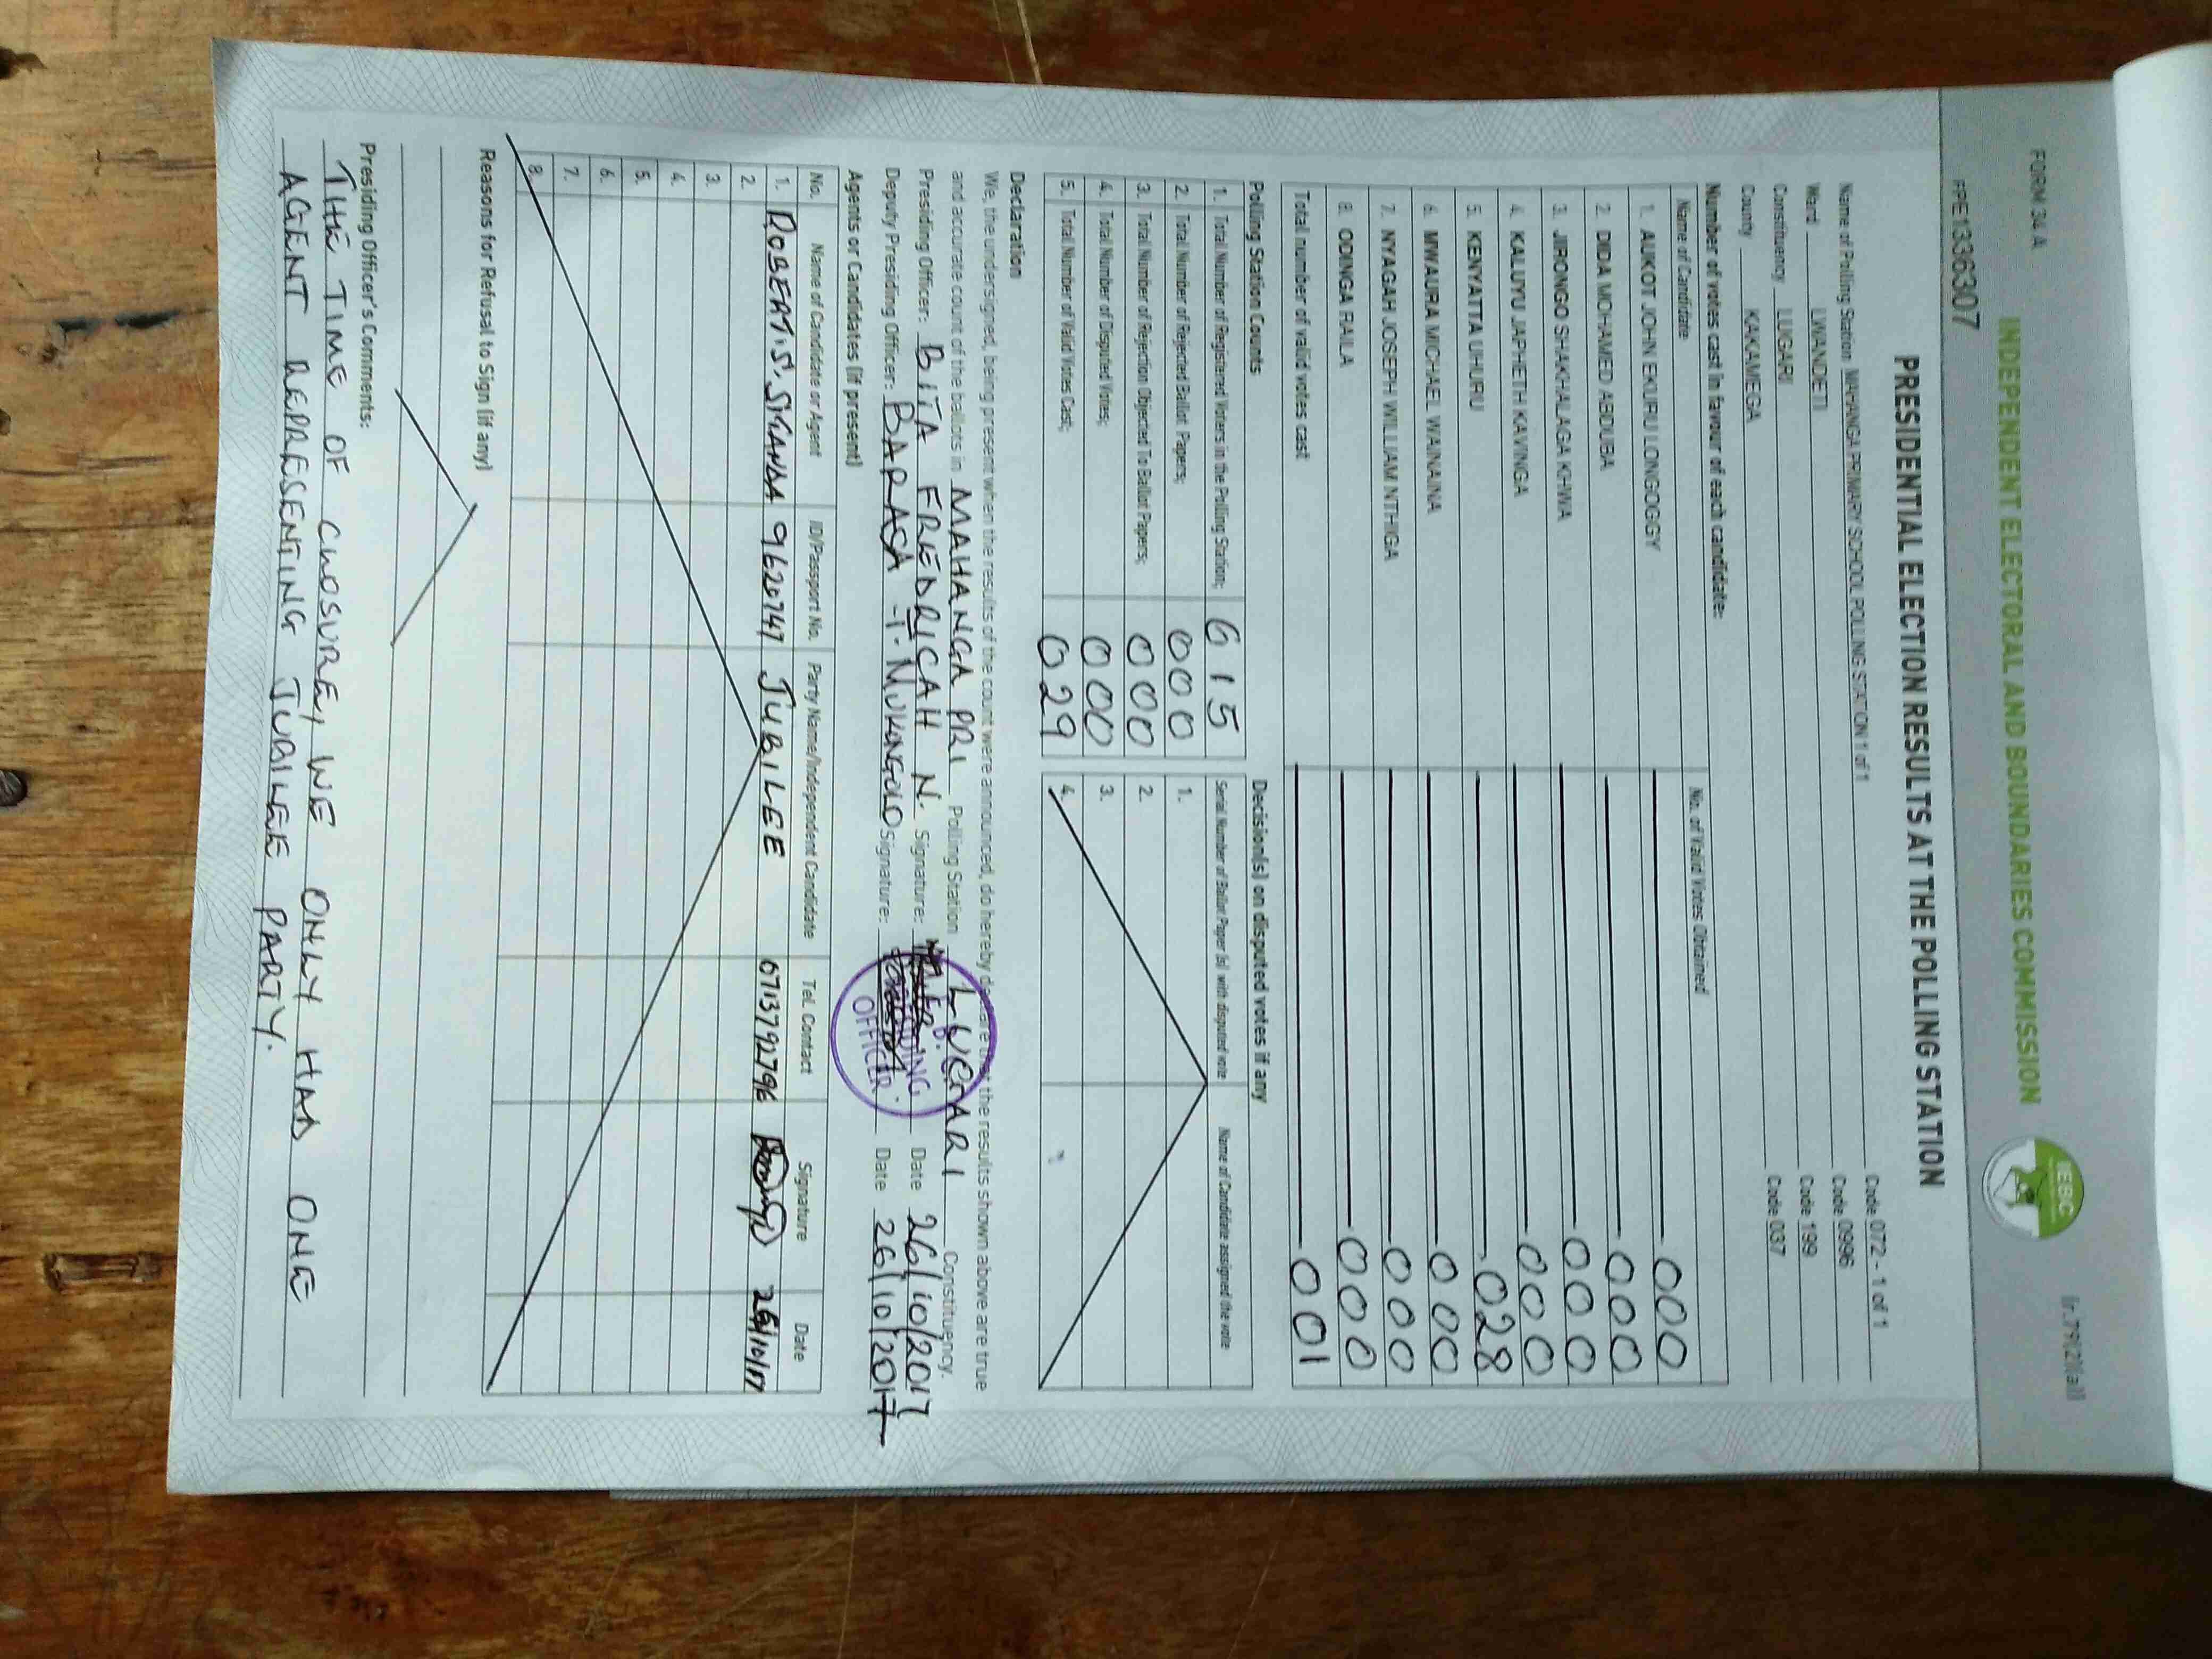 FORM 34 A
(r.79(2)(a))
INDEPENDENT ELECTORAL AND BOUNDARIES COMMISSION
IEBC
PE1336307
PRESIDENTIAL ELECTION RESULTS AT THE POLLING STATION
Name of Polling Station MAHANGA PRIMARY SCHOOL POLLING STATION 1 of 1 Code 072 - 1 of 1
Ward LWANDETI Code 0996
Constituency LUGARI Code 199
County KAKAMEGA Code 037
Number of votes cast in favour of each candidate:
Name of Candidate No. of Valid Votes Obtained
1. AUKOT JOHN EKURU LONGOGGY 000
2. DIDA MOHAMED ABDUBA 000
3. JIRONGO SHAKHALAGA KHWA 000
4. KALUYU JAPHETH KAVINGA 000
5. KENYATTA UHURU 028
6. MWAURA MICHAEL WAINAINA 000
7. NYAGAH JOSEPH WILLIAM NTHIGA 000
8. ODINGA RAILA 000
Total number of valid votes cast 001
Polling Station Counts
1. Total Number of Registered Voters in the Polling Station; 615
2. Total Number of Rejected Ballot Papers; 000
3. Total Number of Rejection Objected To Ballot Papers; 000
4. Total Number of Disputed Votes; 000
5. Total Number of Valid Votes Cast; 029
Decision(s) on disputed votes if any
Serial Number of Ballot Paper (s) with disputed vote Name of Candidate assigned the vote
1.
2.
3.
4.
Declaration
We, the undersigned, being present when the results of the count were announced, do hereby declare that the results shown above are true
and accurate count of the ballots in MAHANGA PRI Polling Station LUGARI Constituency.
Presiding Officer: BITA FREDRICAH N. Signature: Date 26/10/2017
Deputy Presiding Officer: BARASA T. Signature: Date 26/10/2017
OFFICER
Agents or Candidates (if present)
No. Name of Candidate or Agent ID/Passport No. Party Name/Independent Candidate Tel. Contact Signature Date
1. ROBERT S. 9620747 JUBILEE 0713792796 26/10/17
2.
3.
4.
5.
6.
7.
8.
Reasons for Refusal to Sign (if any)
Presiding Officer's Comments:
THE TIME OF CLOSURE, WE ONLY HAD ONE
AGENT REPRESENTING JUBILEE PARTY.